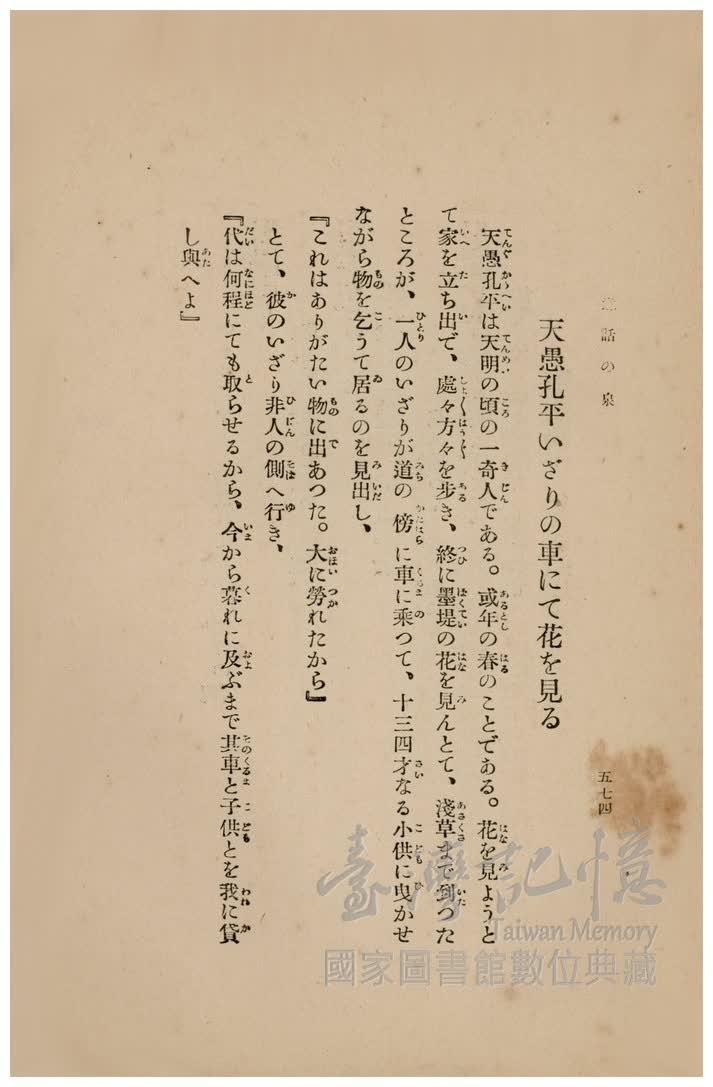 話の泉
五七四
天愚孔平いざりの車にて花を見る
天愚孔平は天明の頃の一奇人である。或年の春のことである。花を見ようと
て家を立ち出で、處々方々を步き、終に墨堤の花を見んとて、淺草まで到つた
ところが、一人のいざりが道の傍に車に乘つて、十三四才なる小供に曳かせ
ながら物を乞うて居るのを見出し、
『これはありがたい物に出あつた。大に勞れたから』
とて、彼のいざり非人の側へ行き、
『代は何程にても取らせるから、今から暮れに及ぶまで其車と子供とを我に貸
し與へよ』
臺灣記憶
Taiwan Memory
國家圖書館數位典藏